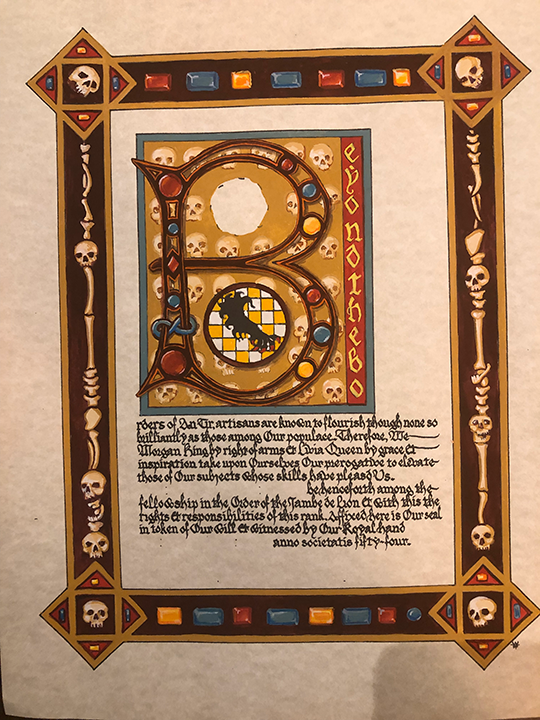 Beyond the bo
rders of An Tir, artisans are known to flourish though none so
brilliantly as those among Our populace. Therefore, We
Morgan King by right of arms & Livia Queen by grace &
inspiration take upon Ourselves Our perogative to elevate
those of Our subjects whose skills have pleasd Us.
be henceforth among the
fellowship in the Order of the Jambe de Lion & with this the
rights & responsibilities of this rank. Affixed here is Our seal
in token of Our will & witnessed by Our Royal hand
anno societatis fifty-four.